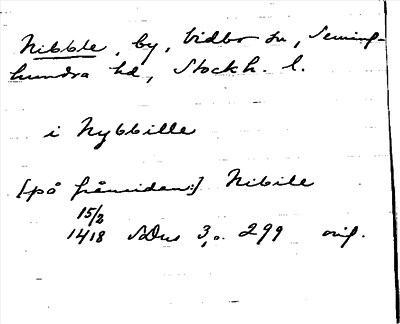 Nibble, by, Vidbo sn, Seming-
hundra hd, Stockh. l.
i Nybbille
[på frånsidan:] Nibile
15/2
1418 SDns 3, s. 299 orig.